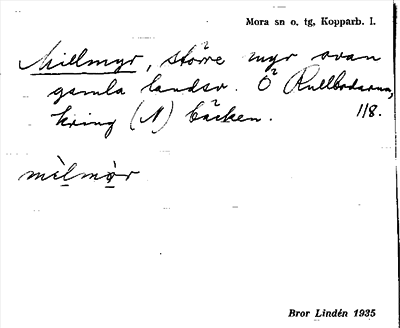 Mora sn o. tg, Kopparb. l.
Millmyr, större myr ovan
gamla landsv. Ö Rullbodarna,
kring (N) bäcken. 118.
mìlmỳr
Bror Lindén 1935